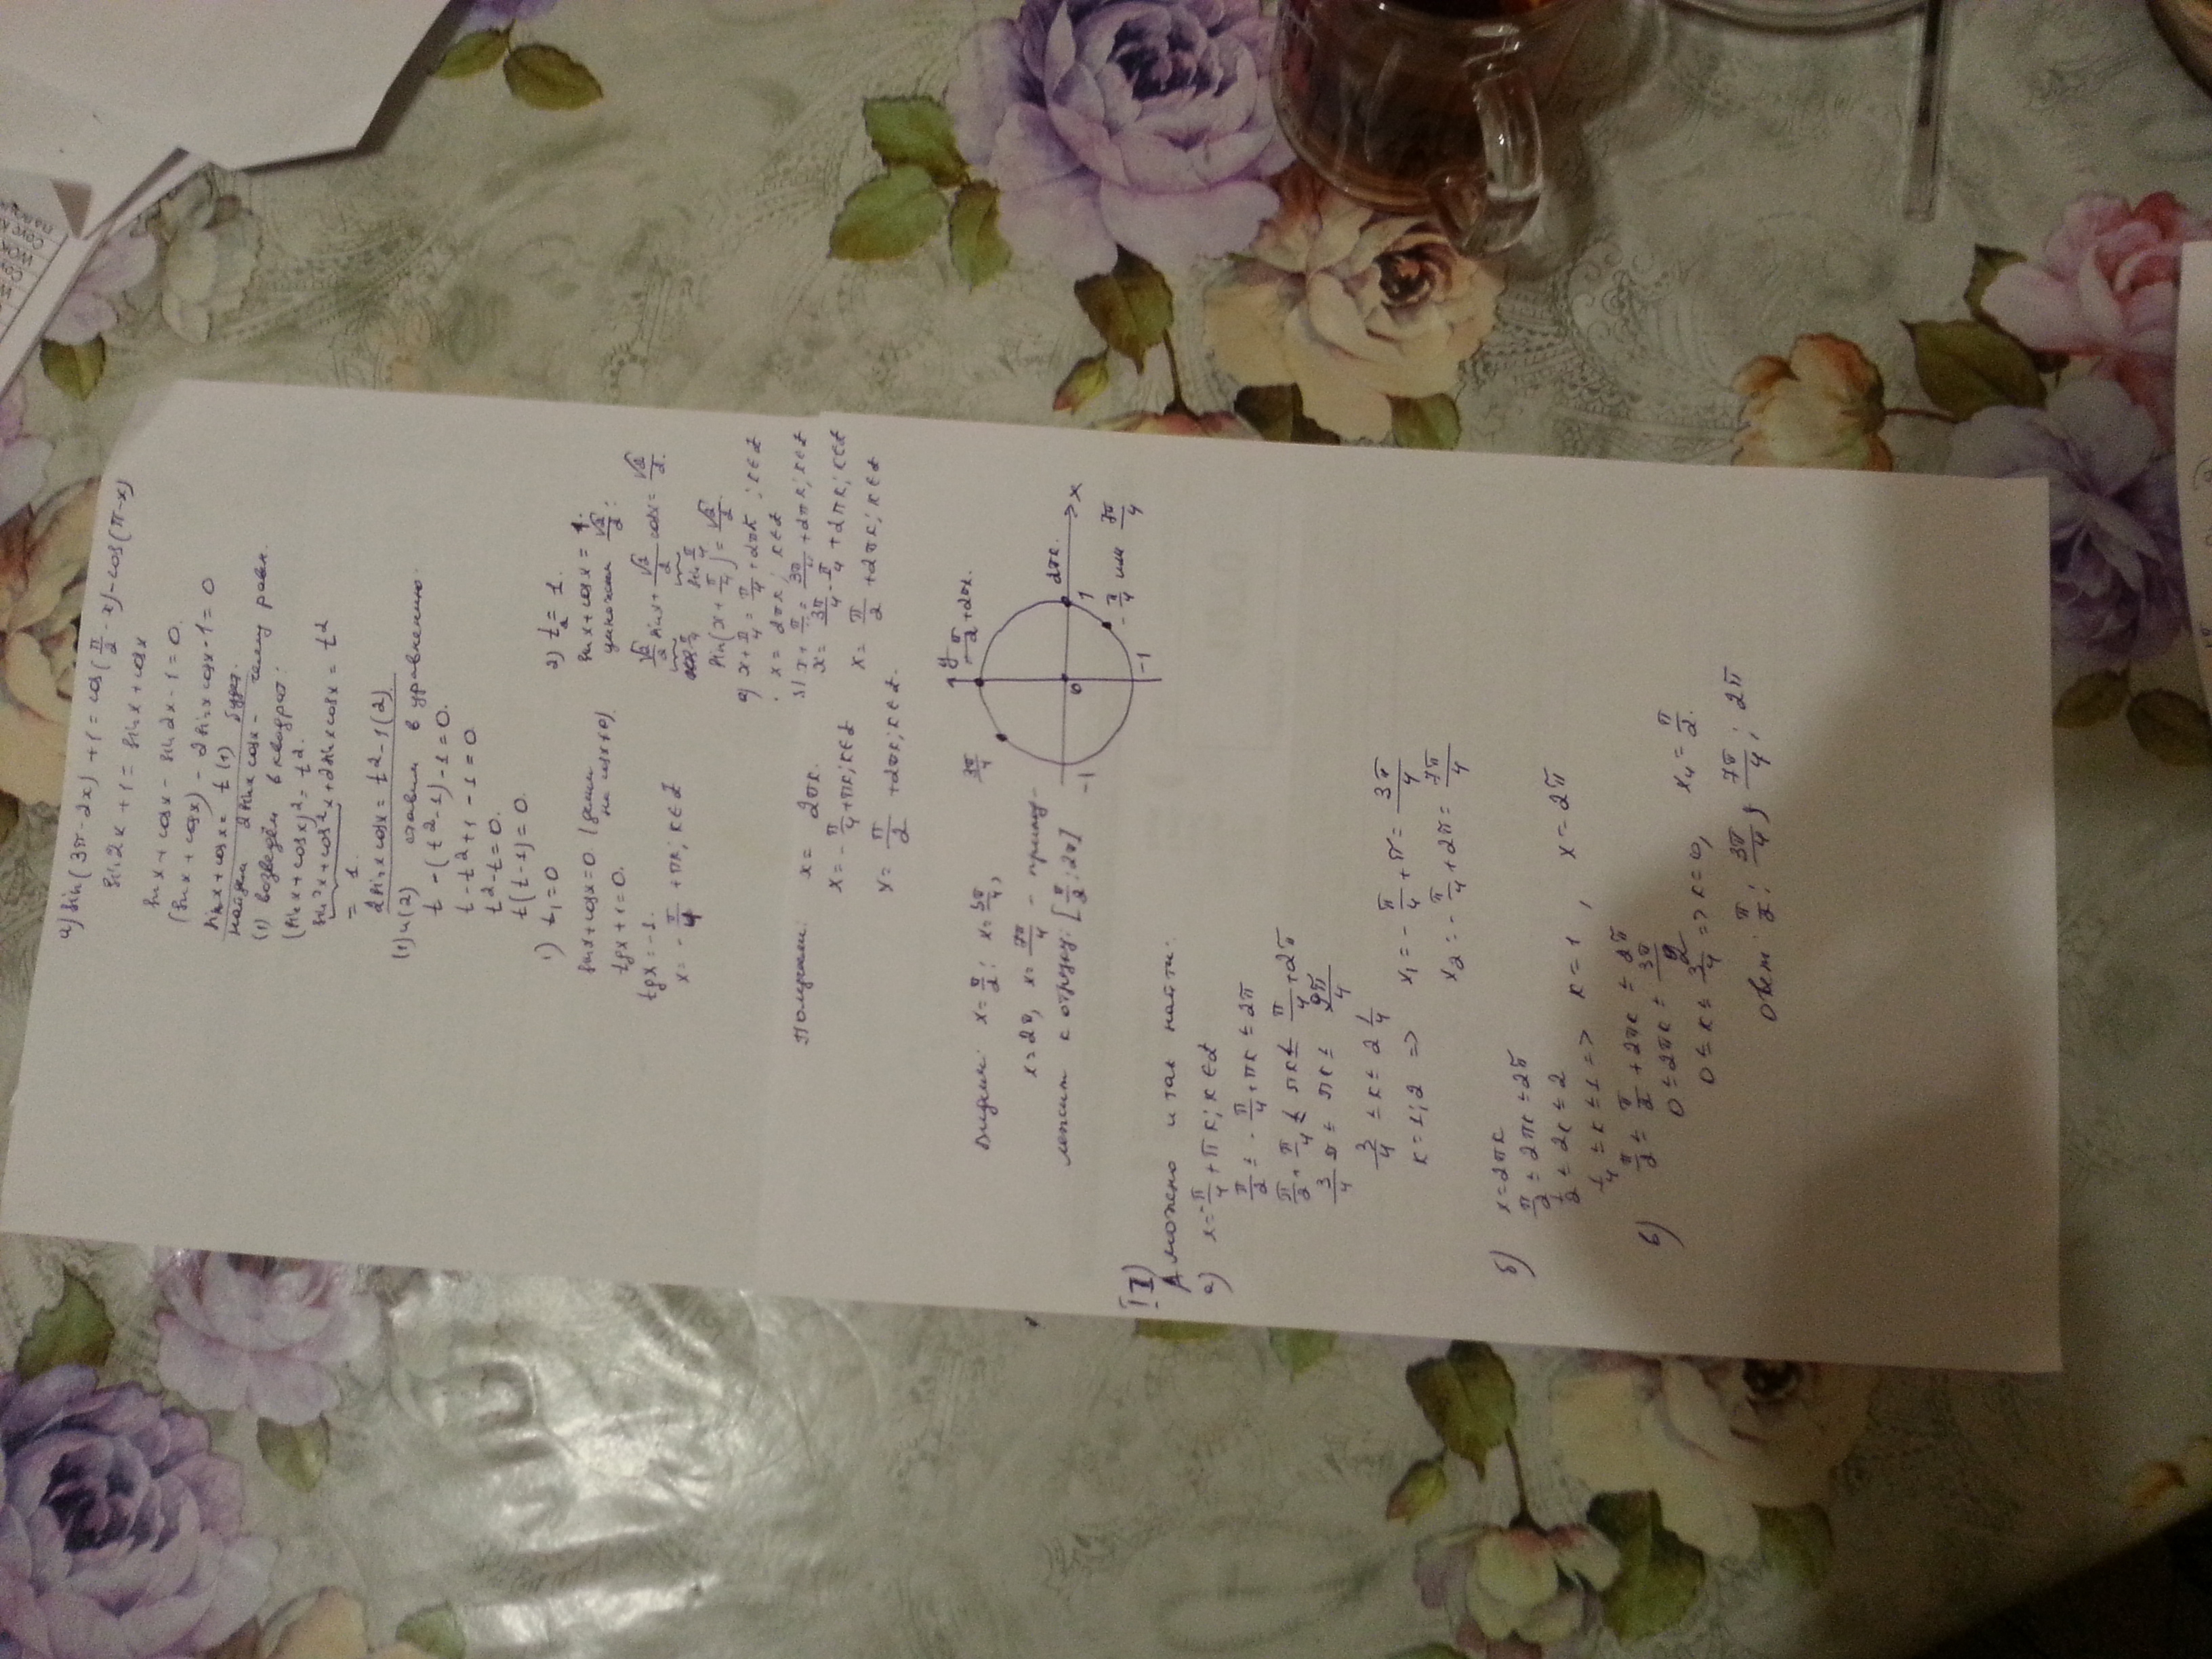 а) sin(3π-2x)+1=cos(π/2-x)-cos(π-x)
sin2x+1=sinx+cosx
sinx+cosx-sin2x-1=0.
(sinx+cosx)-2sinxcosx-1=0
sinx+cosx=t (1)
найдем 2sinxcosx - чему равн.
(1) возведём в квадрат:
(sinx+cosx)²=t².
sin²x+cos²x+2sinxcosx=t²
= 1.
2sinxcosx=t²-1(2)
(1)и(2) ставим в уравнению.
t-(t²-1)-1=0.
t-t²+1-1=0
t²-t=0.
t(t-1)=0.
1) t₁=0
sinx+cosx=0 (делим на cosx≠0)
tgx+1=0.
tgx=-1.
x=-π/4+πк; к∈Z
2) t₂=1.
sinx+cosx=1.
умножаем √2/2:
√2/2 sinx+√2/2 cosx=√2/2.
cos π/4 sin π/4
sin(x+π/4)=√2/2.
а) x+π/4=π/4+2πк; к∈Z
x=2πк; к∈Z
x+π/4=3π/4+2πк; к∈Z
x=3π/4-π/4+2πк; к∈Z
x=π/2+2πк; к∈Z
Получаем:
x=2πк.
x=-π/4+πк; к∈Z
x=π/2+2πк; к∈Z.
y π/2+2πк.
3π/4
2πк. x
-1 0 1
-1
-π/4 или 7π/4
Видим: x=π/2; x=3π/4,
x=2π, x=7π/4 - принад-
лежит к отрезку: [π/2; 2π]
II)
А можно и так найти:
а) x=-π/4+πк; к∈Z
π/2≤-π/4+πк≤2π
π/2+π/4≤πк≤π/4+2π
3/4π≤πк≤9π/4
3/4≤к≤2 1/4
к=1;2 =>
x₁=-π/4+π=3π/4
x₂=-π/4+2π=7π/4
б) x=2πк
π/2≤2πк≤2π
1/2≤2к≤2
1/4≤к≤1=> к=1, x=2π
в) π/2≤π/2+2πк≤2π
0≤2πк≤3π/2
0≤к≤3/4=>к=0, x₄=π/2.
Ответ: π/2; 3π/4; 7π/4; 2π